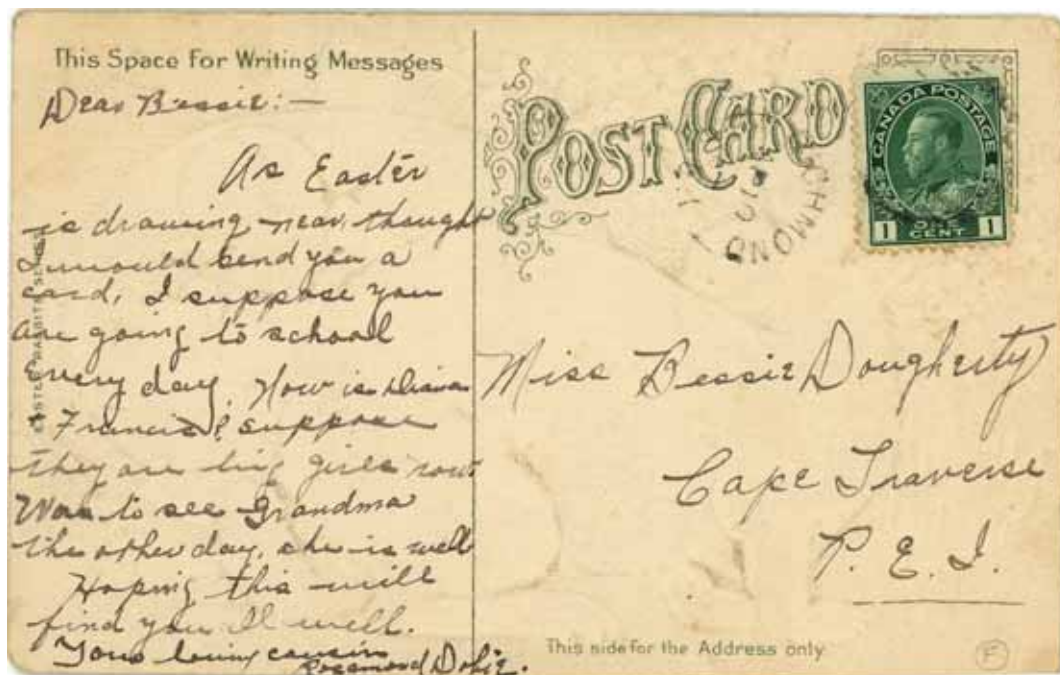 This Space For Writing Messages
Dear Bessie:—
As Easter
is drawing near, thought
I would send you a
card, I suppose you
are going to school
Every day. How is
Francis? suppose
they are big girls now.
Was to see Grandma
the other day, she is well
Hoping this will
find you all well.
Your loving cousin
Rosamond Dobie.
POST CARD
CANADA POSTAGE
1 ONE CENT 1
CHMOND
Miss Bessie Dougherty
Cape Traverse
P. E. I.
This side for the Address only
F